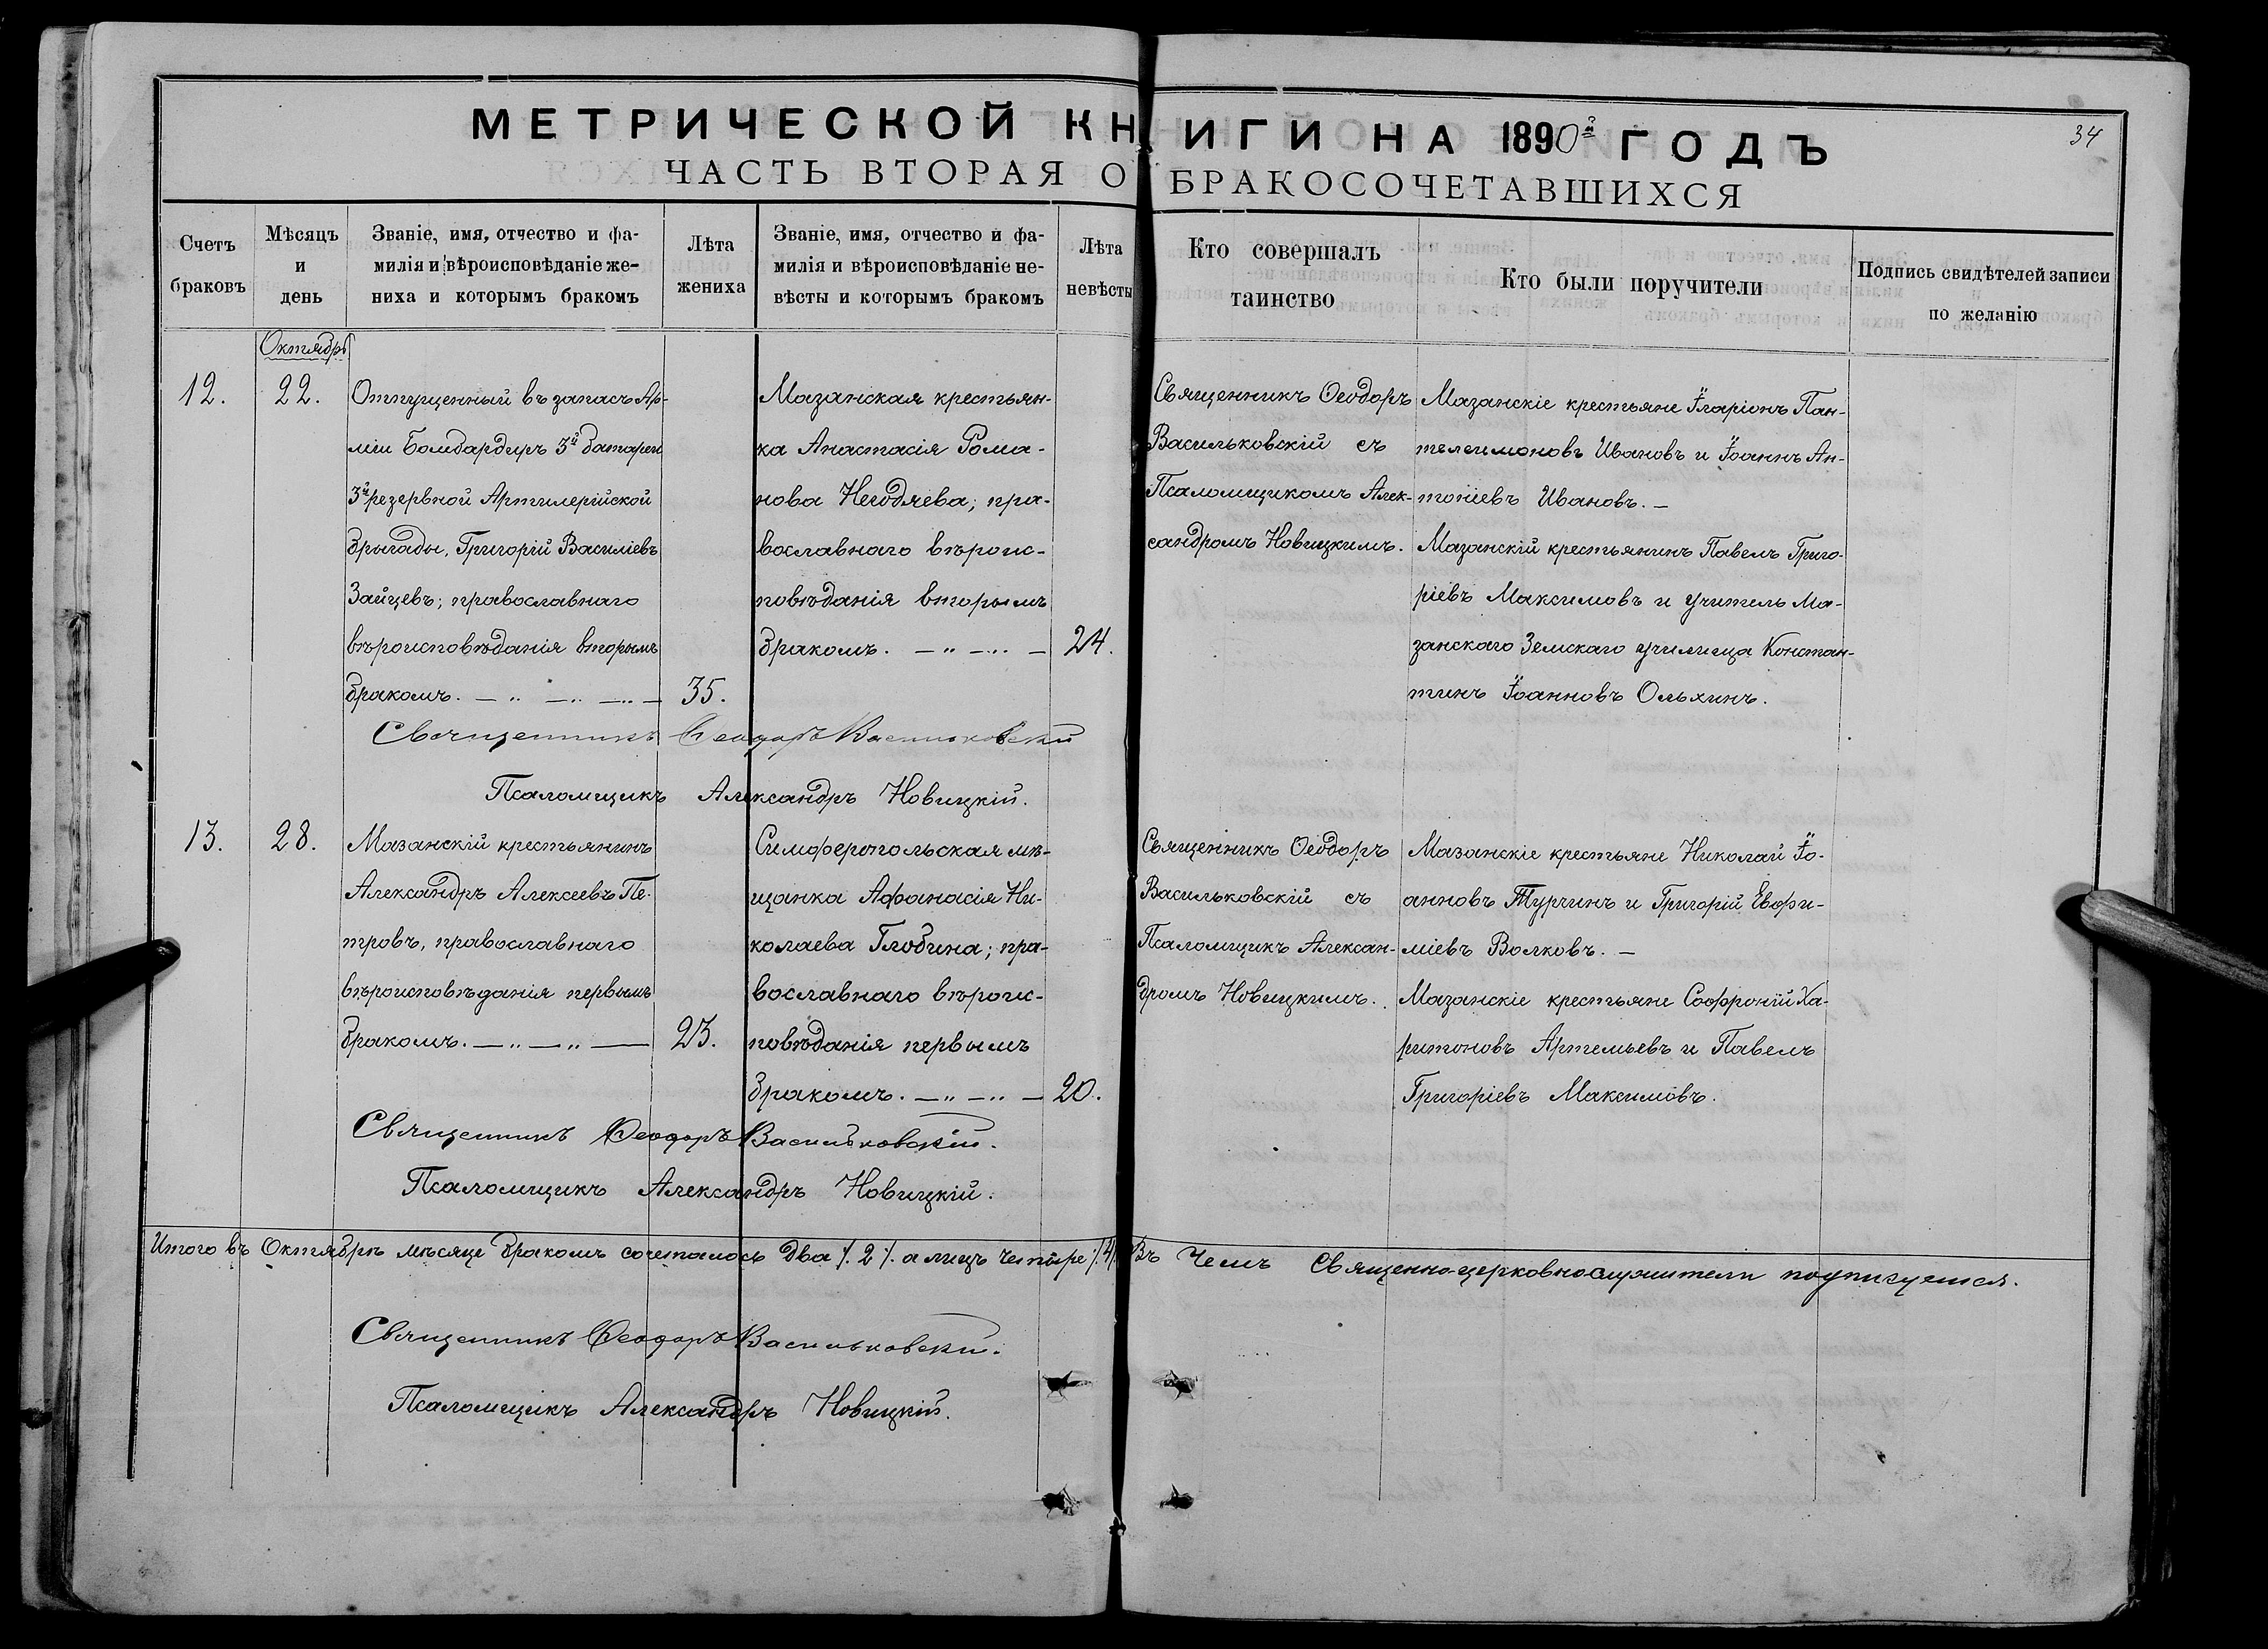 МЕТРИЧЕСКОЙ КНИГИ НА 1890й ГОДЪ
34
ЧАСТЬ ВТОРАЯ О БРАКОСОЧЕТАВШИХСЯ
Счетъ
браковъ
Мѣсяцъ
и
день
Званіе, имя, отчество и фа-
милія и вѣроисповѣданіе же-
ниха и которымъ бракомъ
Лѣта
жениха
Званіе, имя, отчество и фа-
милія и вѣроисповѣданіе не-
вѣсты и которымъ бракомъ
Лѣта
невѣсты
Кто совершалъ
таинство
Кто были поручители
Подпись свидѣтелей записи
по желанію
Октябрь
12.
22.
Отпущенный въ запасъ Ар-
міи Бомбардиръ 3й батареи
3й резервной Артилерійской
бригады, Григорій Василіевъ
Зайцевъ; православнаго
вѣроисповѣданія вторымъ
бракомъ.
35.
Мазанская крестьян-
ка Анастасія Рома-
нова Негодяева; пра-
вославнаго вѣроис-
повѣданія вторымъ
бракомъ.
24.
Священникъ Ѳеодоръ
Васильковскій съ
Псаломщикомъ Алек-
сандромъ Новицкимъ.
Мазанскіе крестьяне Іларіонъ Пан-
телеимоновъ Ивановъ и Іоаннъ Ан-
тоніевъ Ивановъ. –
Мазанскій крестьянинъ Павелъ Григо-
ріевъ Максимовъ и учитель Ма-
занскаго Земскаго училища Констан-
тинъ Іоанновъ Ольхинъ.
Священникъ Ѳеодоръ Васильковскій
Псаломщикъ Александръ Новицкій.
13.
28.
Мазанскій крестьянинъ
Александръ Алексеевъ Пе-
тровъ, православнаго
вѣроисповѣданія первымъ
бракомъ.
23.
Симферопольская мѣ-
щанка Афанасія Ни-
колаева Глобина; пра-
вославнаго вѣроис-
повѣданія первымъ
бракомъ.
20.
Священникъ Ѳеодоръ
Васильковскій съ
Псаломщикъ Алексан-
дромъ Новицкимъ.
Мазанскіе крестьяне Николай Іо-
анновъ Турчинъ и Григорій Евфи-
міевъ Волковъ. –
Мазанскіе крестьяне Софроній Ха-
ритоновъ Артемьевъ и Павелъ
Григоріевъ Максимовъ.
Священникъ Ѳеодоръ Васильковскій.
Псаломщикъ Александръ Новицкій.
Итого въ Октябрѣ мѣсяце бракомъ сочеталось два /. 2 /. а лицъ четыре /. 4 /. Въ чемъ Священно-церковнослужители подписуемся.
Священникъ Ѳеодоръ Васильковскій.
Псаломщикъ Александръ Новицкій.